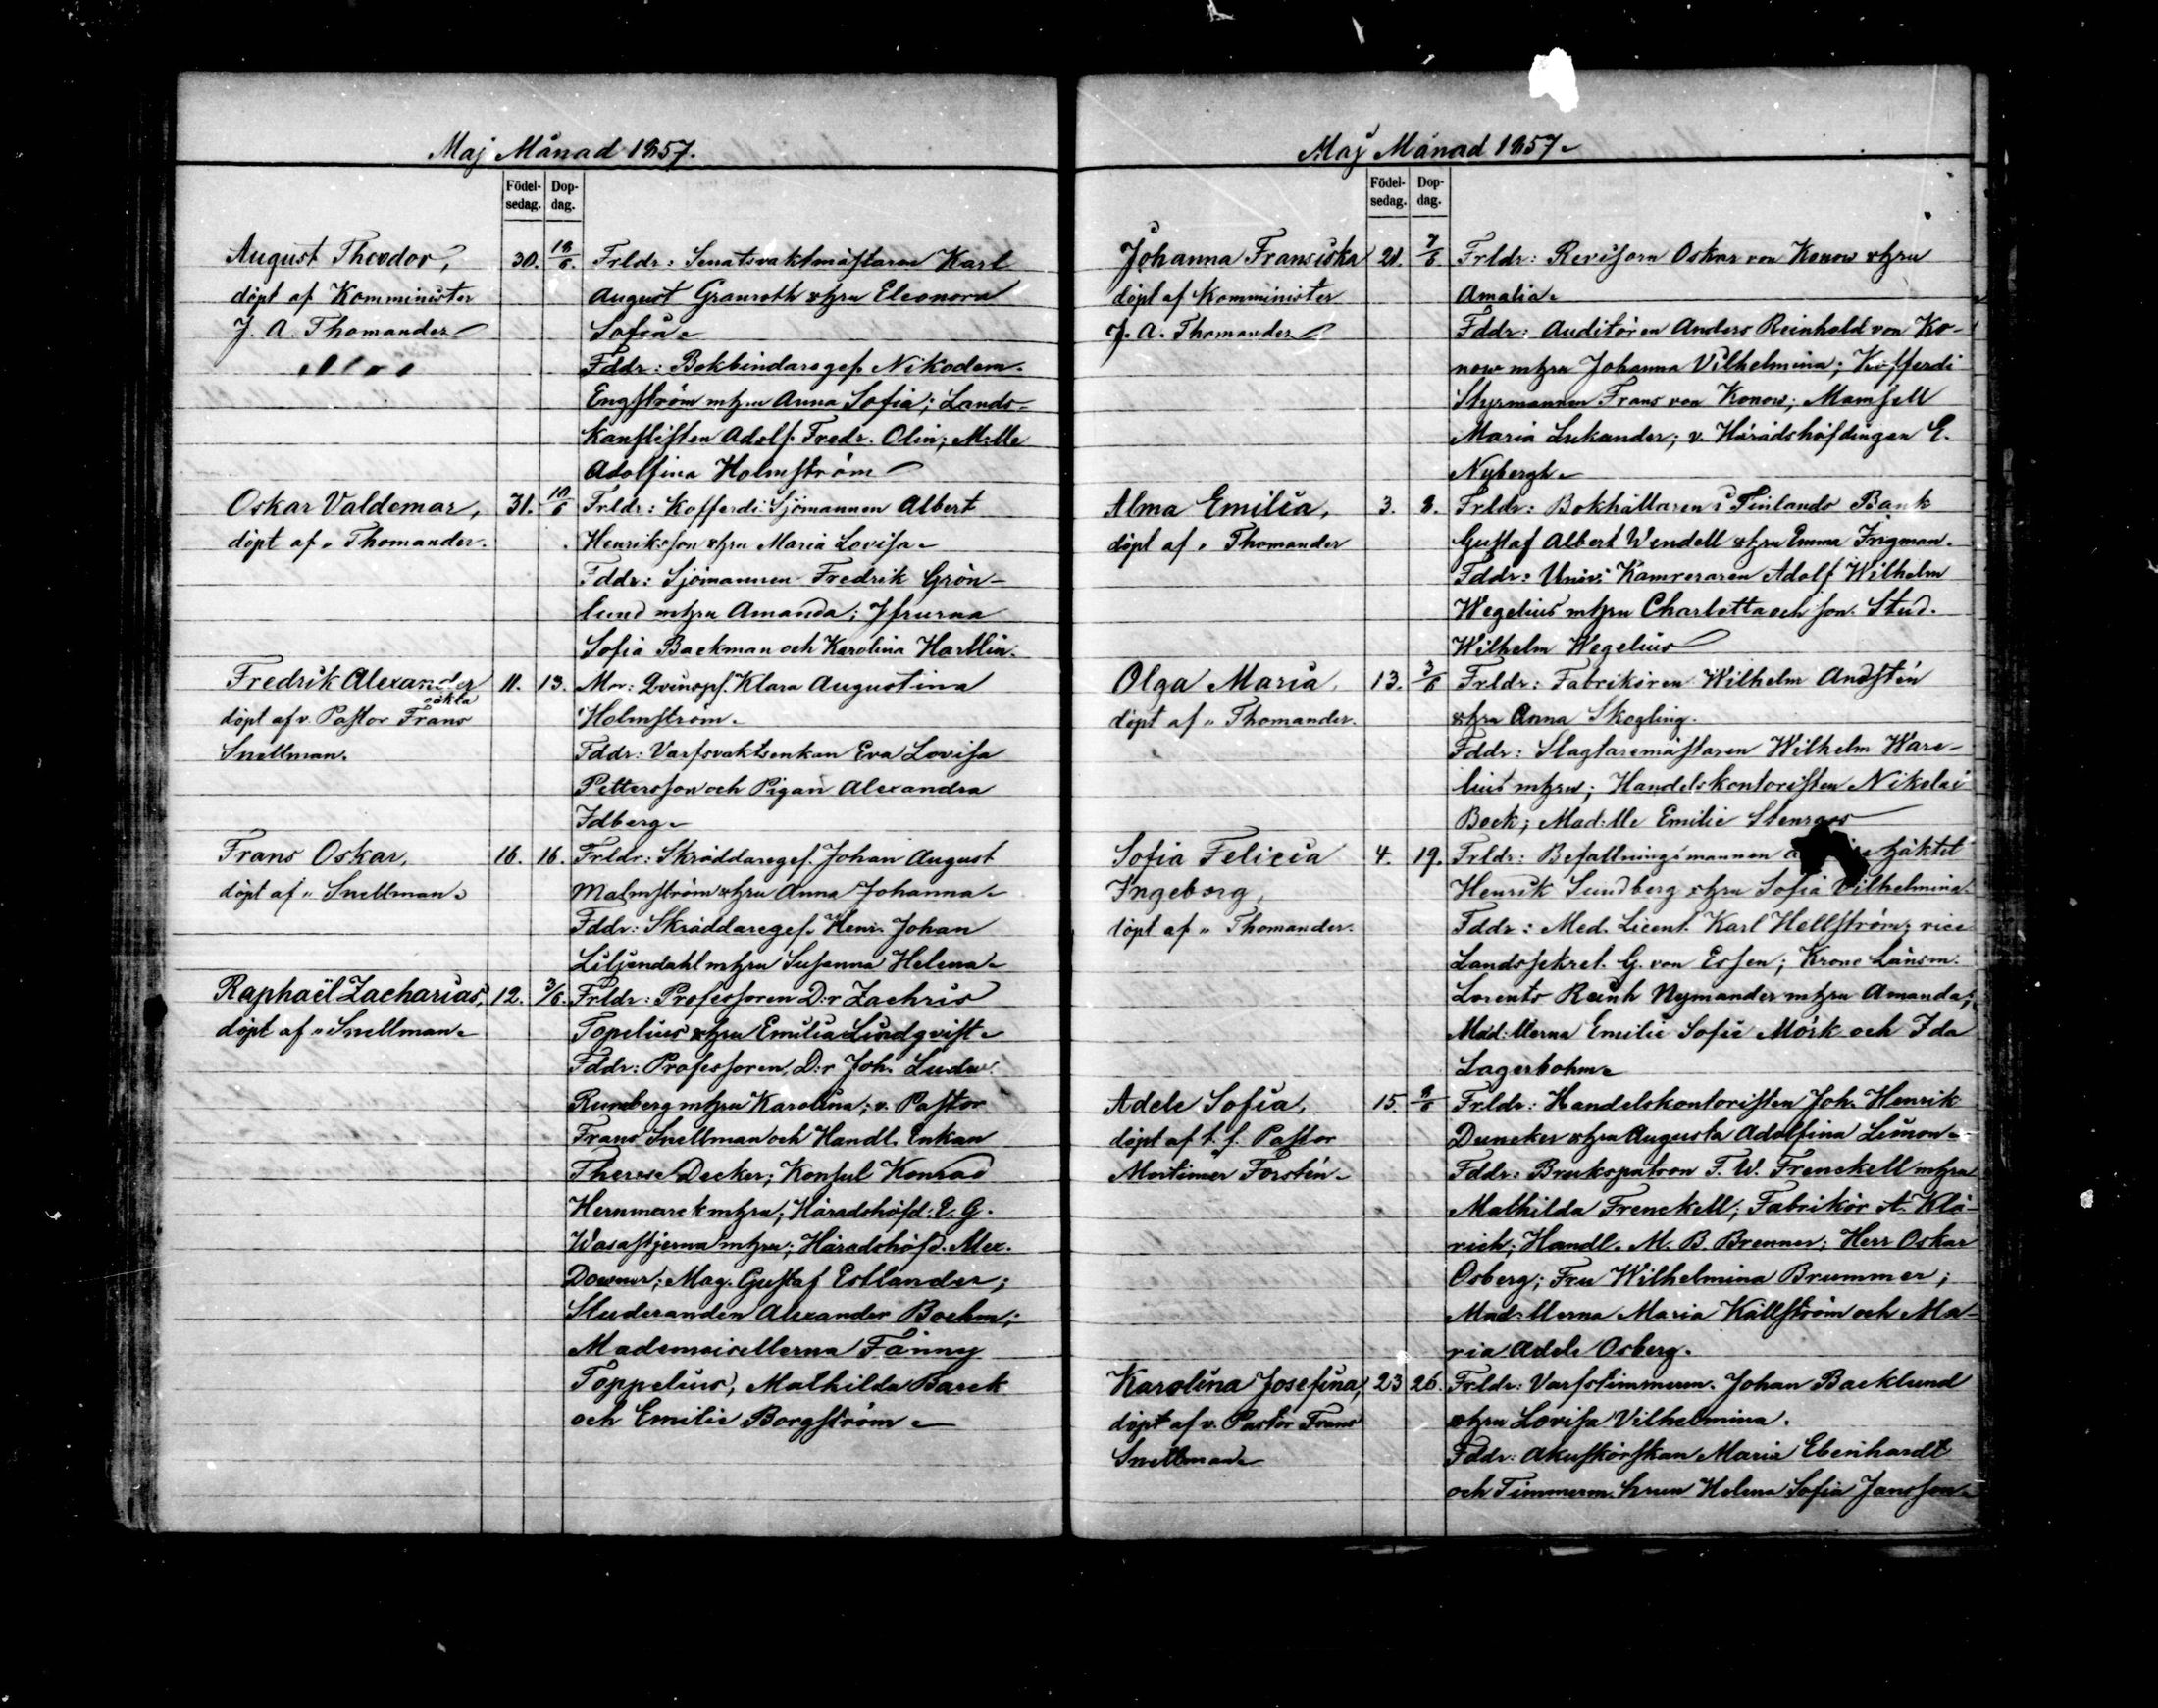 Maj Månad 1857.
Födel-
sedag.
Dop-
dag.
August Theodor, 30. 18/6. Frldr: Senatsvaktmästaren Karl
döpt af Komminister August Granroth o hru Eleonora
J. A. Thomander Sofia.
Fddr: Bokbindareges. Nikodem.
Engström m hru Anna Sofia; Lands-
kanslisten Adolf Fredr. Olin; M:lle
Adolfina Holmström
Oskar Valdemar, 31. 10/6 Frldr: Kofferdi Sjömannen Albert
döpt af „ Thomander. Henriksson o hru Maria Lovisa
Fddr: Sjömannen Fredrik Grön-
lund m hru Amanda; Jfrurna
Sofia Backman och Karolina Hartlin.
Fredrik Alexander 11. 13. Mor: Qvinsp. Klara Augustina
oäkta
döpt af v. Pastor Frans Holmström.
Snellman. Fddr: Varfsvaktsenkan Eva Lovisa
Pettersson och Pigan Alexandra
Idberg
Frans Oskar, 16. 16. Frldr: Skräddareges. Johan August
döpt af „ Snellman. Malmström o hru Anna Johanna
Fddr: Skräddareges. Henr. Johan
Liljendahl m hru Susanna Helena
Raphaël Zacharias, 12. 3/6. Frldr: Professoren D:r Zachris
döpt af „ Snellman Topelius o hru Emilia Lindqvist
Fddr: Professoren, D:r Joh. Ludv.
Runeberg m hru Karolina; v. Pastor
Frans Snellman och Handl. Enkan
Therese Decker; Konsul Konrad
Hernmarck m hru; Häradshöfd: E. G.
Wasastjerna m hru; Häradshöfd. Alex.
Downer; Mag. Gustaf Estlander;
Studeranden Alexander Boehm;
Mademoisellerna Fanny
Toppelius, Mathilda Barck
och Emilie Borgström
Maj Månad 1857
Födel-
sedag.
Dop-
dag.
Johanna Fransiska 21. 7/6. Frldr: Revisorn Oskar von Konow o hru
döpt af Komminister Amalia
J. A. Thomander Fddr: Auditören Anders Reinhold von Ko-
now m hru Johanna Vilhelmina; Kofferdi
Styrmannen Frans von Konow; Mamsell
Maria Lukander; v. Häradshöfdingen E.
Nybergh
Alma Emilia, 3. 8. Frldr: Bokhållaren i Finlands Bank
döpt af „ Thomander Gustaf Albert Wendell o hru Emma Frigman.
Fddr: Univ: Kamreraren Adolf Wilhelm
Wegelius m hru Charlotta och son. Stud.
Wilhelm Wegelius
Olga Maria, 13. 3/6 Frldr: Fabrikören Wilhelm Andstén
döpt af „ Thomander. o hru Anna Skogling.
Fddr: Slagtaremästaren Wilhelm Ware-
lius m hru; Handelskontoristen Nikolai
Bock; Mad:lle Emilie Stenroos
Sofia Felicia 4. 19. Frldr: Befallningsmannen häktet
Ingeborg, Henrik Sundberg o hru Sofia Vilhelmina.
döpt af „ Thomander. Fddr: Med. Licent. Karl Hellström; vice
Landssekret. G. von Essen; Krono Länsm.
Lorents Reinh Nymander m hru Amanda;
Mad:llerna Emilie Sofie Mörk och Ida
Lagerbohm
Adele Sofia, 15. 8/6 Frldr: Handelskontoristen Joh. Henrik
döpt af t. f. Pastor Duncker o hru Augusta Adolfina Limon
Mortimer Forstén Fddr: Brukspatron F. W. Frenckell m hru
Mathilda Frenckell; Fabrikör A. Klä-
rich; Handl. M. B. Brenner; Herr Oskar
Osberg; Fru Wilhelmina Brummer;
Mad:llerna Maria Källström och Ma-
ria Adele Osberg.
Karolina Josefina, 23 26. Frldr: Varfstimmerm. Johan Backlund
döpt af v. Pastor Frans o hru Lovisa Vilhelmina.
Snellman Fddr: Akuskörskan Maria Ebenhardt
och Timmerm. hrun Helena Sofia Jansson